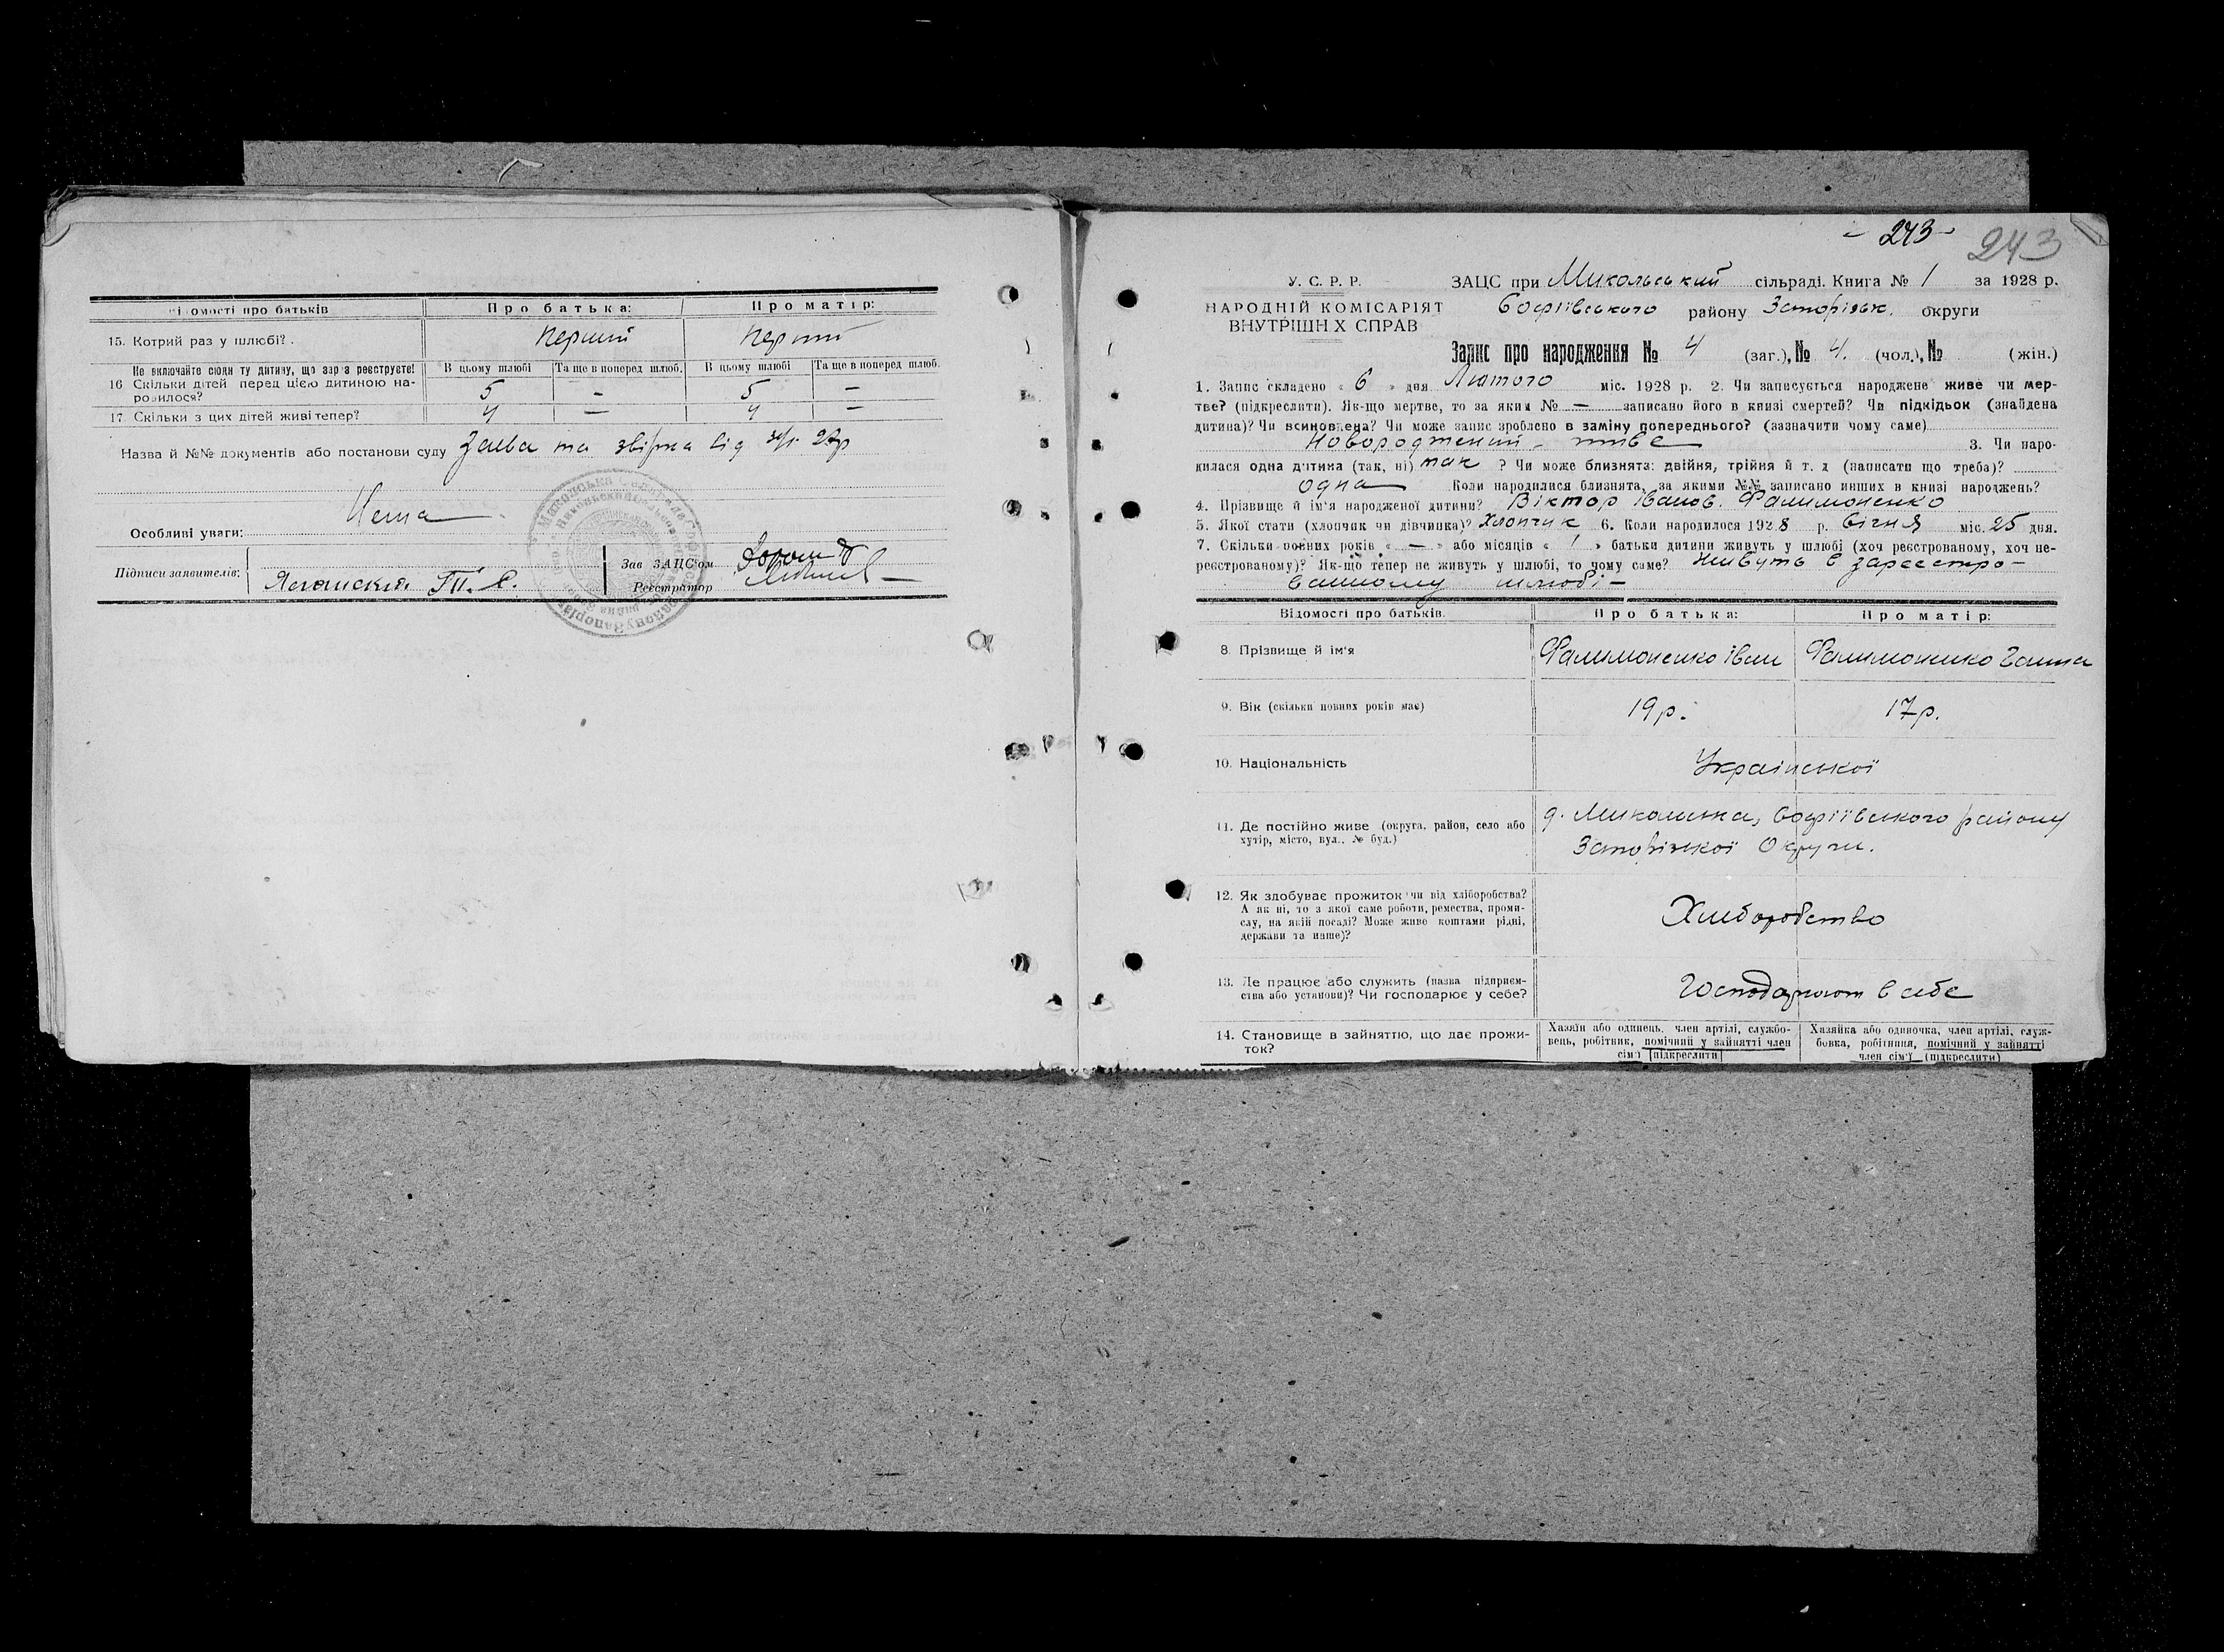 Відомости про батьків
Про батька:
Про матір:
15. Котрий раз у шлюбі?
Перший
Перший
Не включайте сюди ту дитину, що зараз реєструєте!
В цьому шлюбі
Та ще в поперед шлюб.
В цьому шлюбі
Та ще в поперед шлюб.
16 Скільки дітей перед цією дитиною на-
родилося?
5
-
5
-
17. Скільки з цих дітей живі тепер?
4
-
4
-
Назва й №№ документів або постанови суду Заява та звірка від
Особливі уваги: Нема
Підписи заявителів:
Зав ЗАЦС'ом
Реєстратор
- 243 -
243
У. С. Р. Р.
НАРОДНІЙ КОМІСАРІЯТ
ВНУТРІШНІХ СПРАВ
ЗАЦС при Микольський сільраді. Книга № 1 за 1928 р.
Софіївського району Запорізьк. округи
Запис про народження № 4 (заг.), № 4. (чол.), № (жін.)
1. Запис складено « 6 » дня Лютого міс. 1928 р. 2. Чи записується народжене живе чи мер-
тве? (підкреслити). Як-що мертве, то за яким № — записано його в книзі смертей? Чи підкідьок (знайдена
дитина)? Чи всиновлена? Чи може запис зроблено в заміну попереднього? (зазначити чому саме)
Новороджений - живе 3. Чи наро-
дилася одна дитина (так, ні) так ? Чи може близнята: двійня, трійня й т. д (написати що треба)?
Одна Коли народилися близнята, за якими №№ записано инших в книзі народжень?
4. Прізвище й ім'я народженої дитини? Віктор Іванов. Фалимоненко
5. Якої стати (хлопчик чи дівчинка)? Хлопчик 6. Коли народилося 1928 р. Січня міс. 25 дня.
7. Скільки повних років « — » або місяців « 1 » батьки дитини живуть у шлюбі (хоч реєстрованому, хоч не-
реєстрованому)? Як-що тепер не живуть у шлюбі, то чому саме? Живуть в зареєстро-
ванному шлюбі -
Відомості про батьків.
Про батька:
Про матір:
8. Прізвище й ім'я
Фалимоненко Іван
Фалимоненко Ганна
9. Вік (скільки повних років має)
19 р.
17 р.
10. Національність
Української
11. Де постійно живе (округа, район, село або
хутір, місто, вул., № буд.)
Софіївського району
Запорізької Округи.
12. Як здобуває прожиток чи від хліборобства?
А як ні, то з якої саме роботи, ремества, проми-
слу, на якій посаді? Може живе коштами рідні,
держави та инше)?
Хліборобство
13. Де працює або служить (назва підприєм-
ства або установи)? Чи господарює у себе?
Господарюют в себе
14. Становище в зайняттю, що дає прожи-
ток?
Хазяїн або одинець, член артілі, службо-
вець, робітник, помічний у зайнятті член
сім'ї (підкреслити)
Хазяйка або одиночка, член артілі, служ-
бовка, робітниця, помічний у зайнятті
член сім'ї (підкреслити)